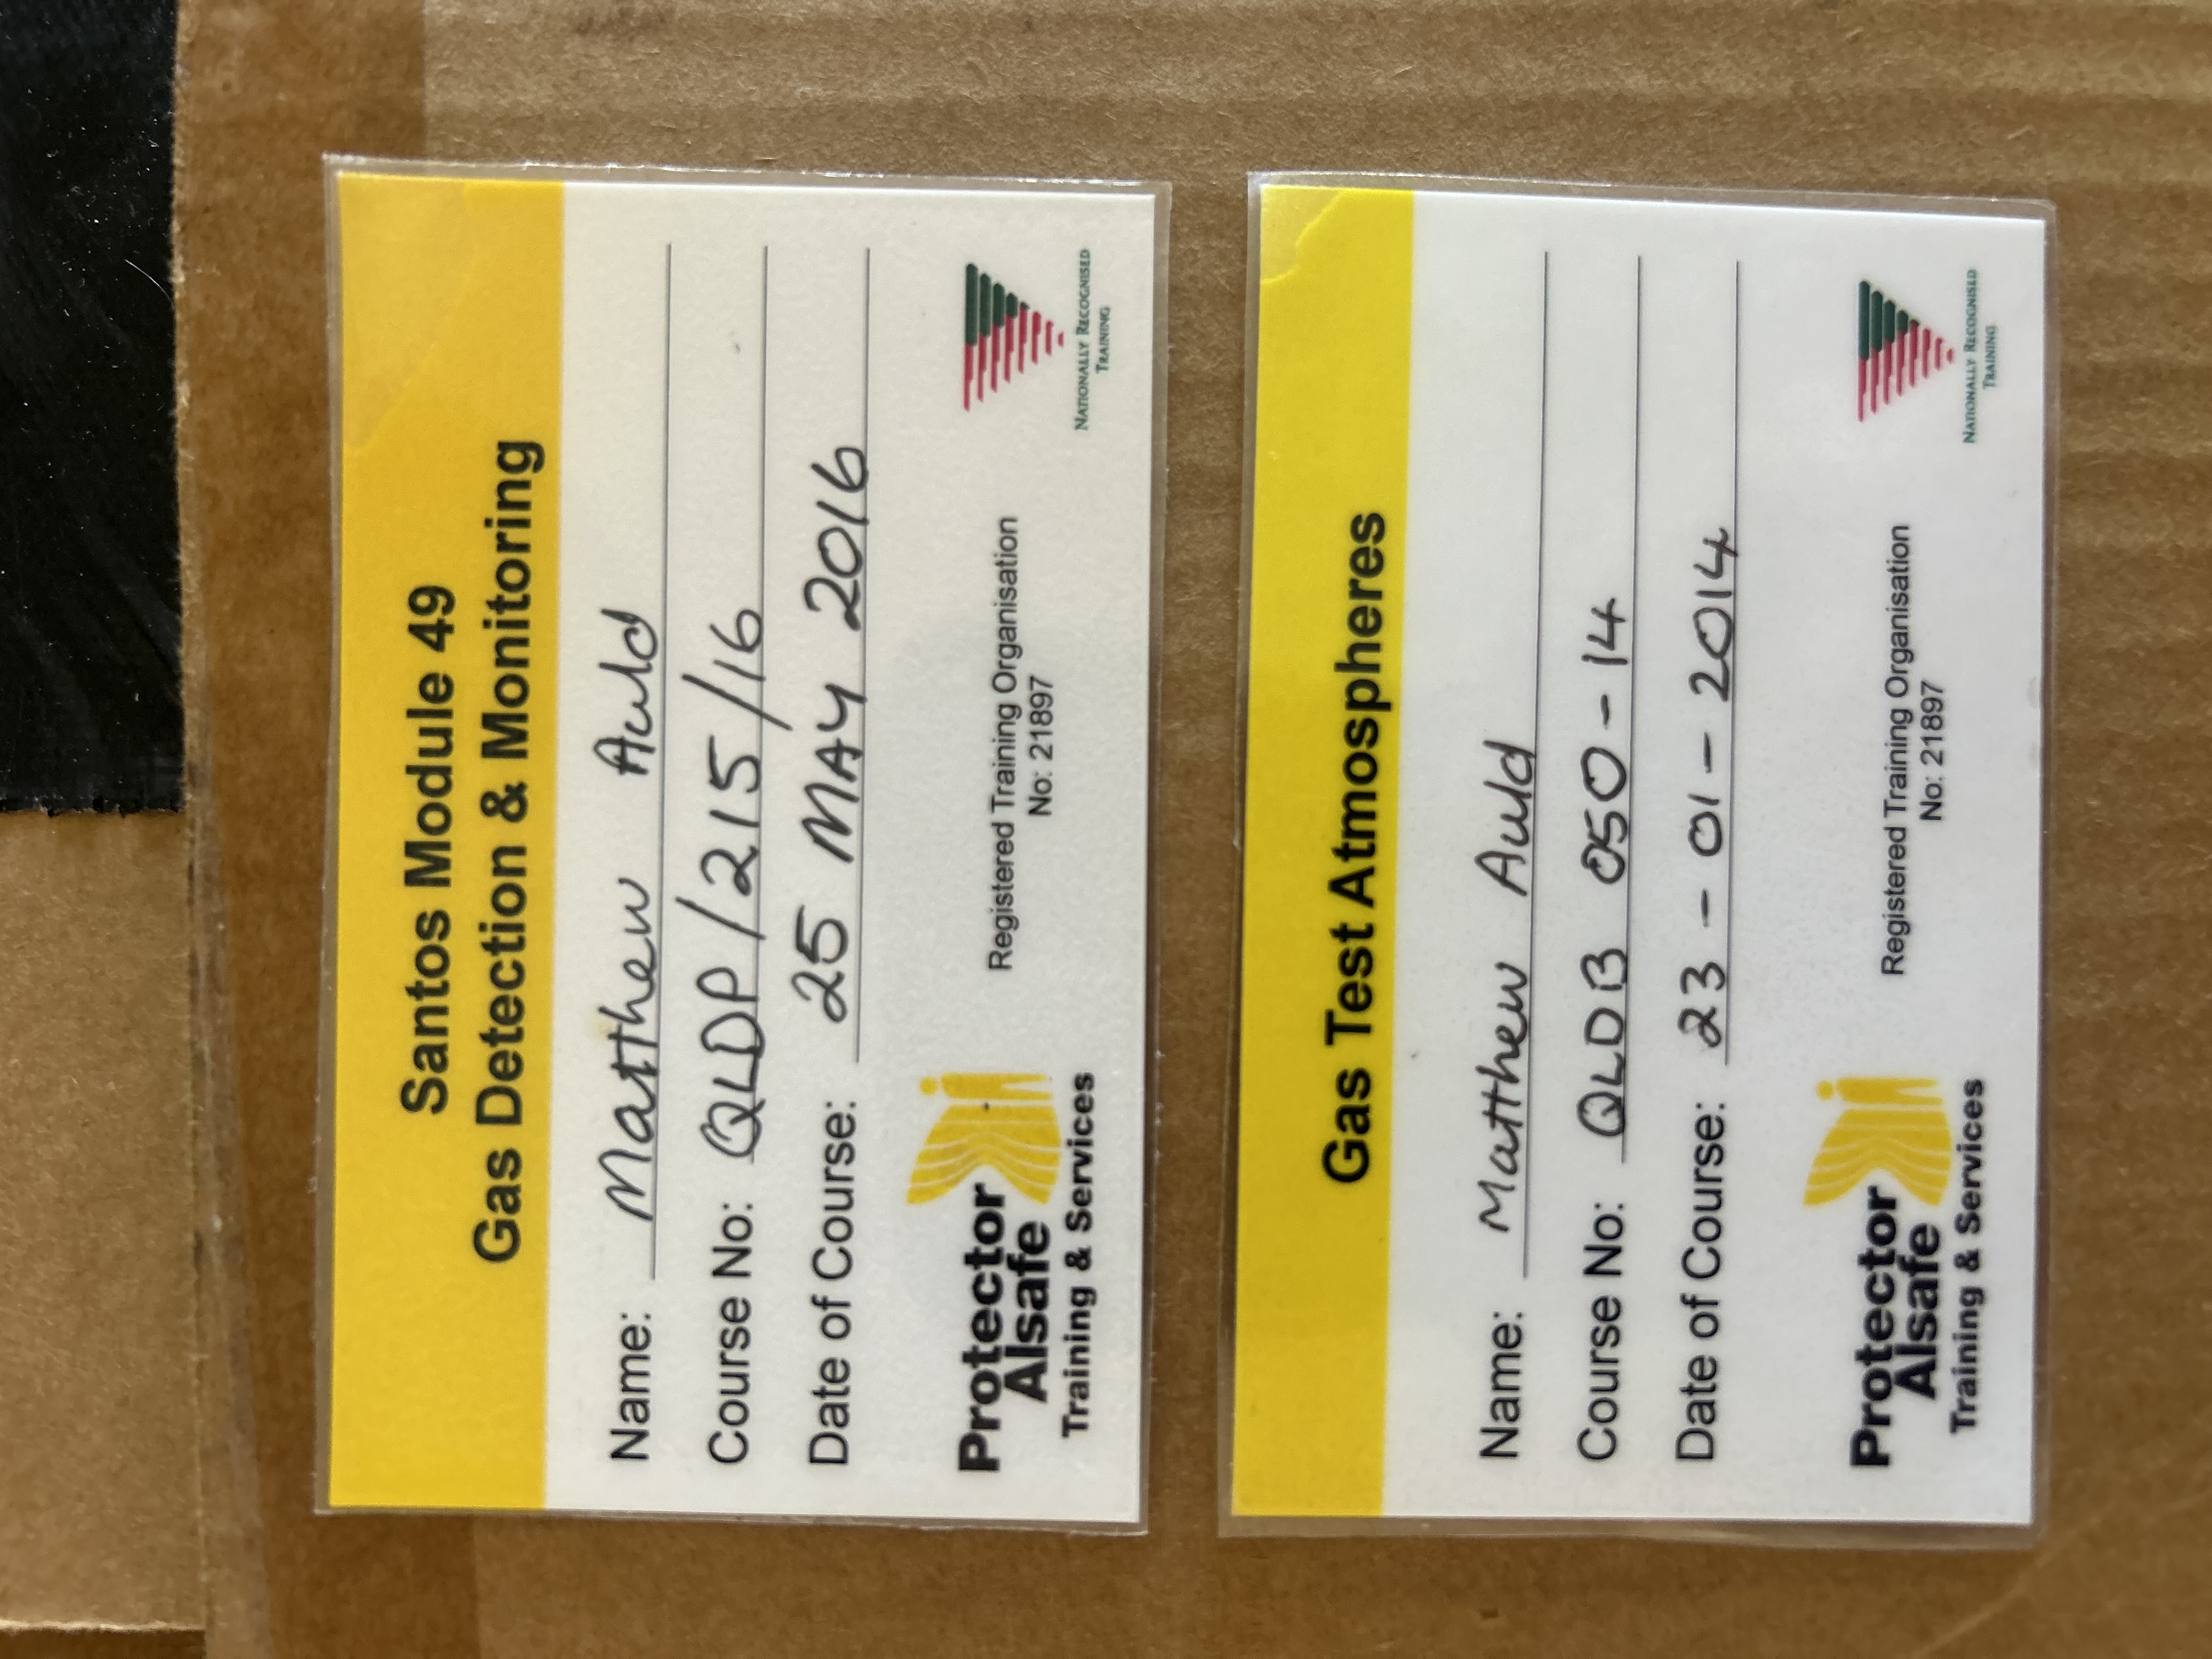 Santos Module 49
Gas Detection & Monitoring
Name: Matthew Auld
Course No: QLDP/215/16
Date of Course: 25 MAY 2016
Protector
Alsafe
Training & Services
Registered Training Organisation
No: 21897
NATIONALLY RECOGNISED
TRAINING
Gas Test Atmospheres
Name: Matthew Auld
Course No: QLDB 050-14
Date of Course: 23-01-2014
Protector
Alsafe
Training & Services
Registered Training Organisation
No: 21897
NATIONALLY RECOGNISED
TRAINING